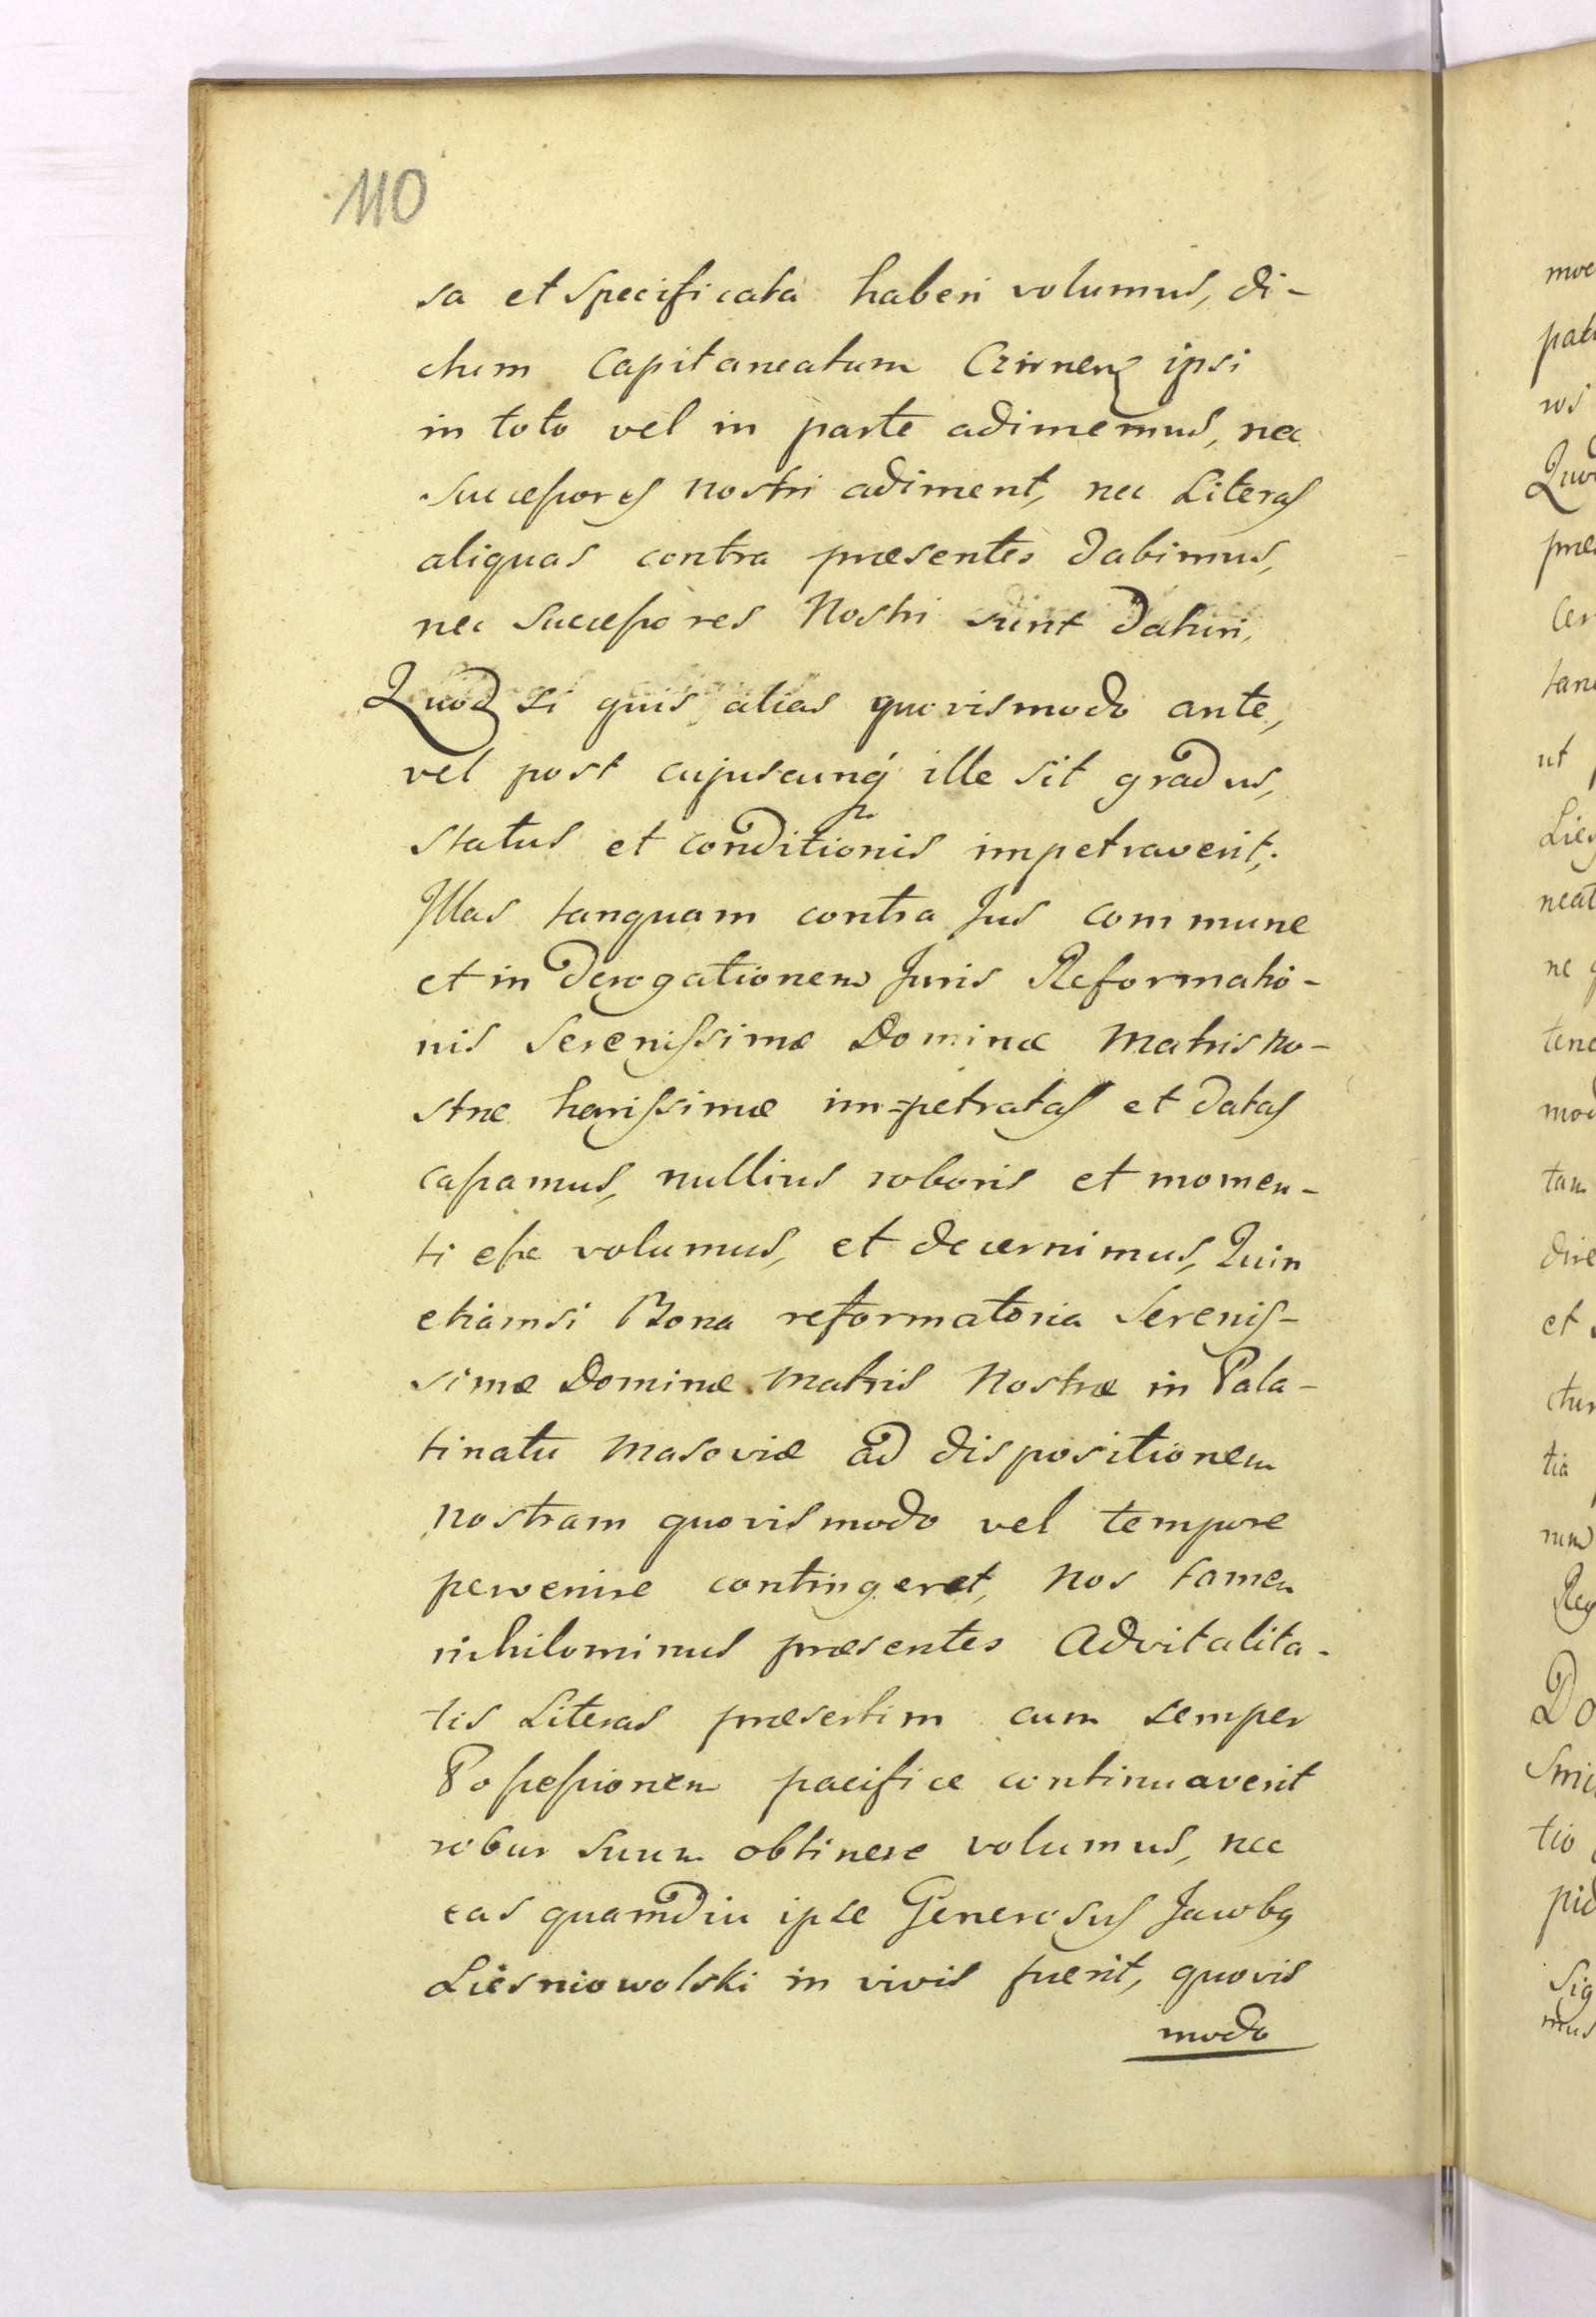 110
sa et specificata haberi volumus, di-
ctum Capitaneatum Czirnen ipsi
in toto vel in parte adimemus, nec
successores nostri adiment, nec Literas
aliquas contra præsentes dabimus,
nec successores Nostri sunt daturi,
Quod si quis alias quovismodo ante,
vel post cujuscunq ille sit gradus,
status et conditionis impetraverit;
Illas tanquam contra Jus commune
et in derogationem Juris Reformatio-
nis Serenissimæ Dominæ Matris no-
stræ harissimæ im=petratas et datas
cassamus, nullius roboris et momen-
ti esse volumus, et decernimus, Quin
etiamsi Bona reformatoria Serenis-
simæ Dominæ Matris Nostræ in Pala-
tinatu Masoviæ ad dispositionem
nostram quovismodo vel tempore
pervenire contingeret, Nos tamen
nihilominus præsentes Advitalita-
tis Literas præsertim cum semper
Possessionem pacifice continuaverit
robur suum obtinere volumus, nec
eas quamdiu ipse Generosus Jacobus
Liesniowolski in vivis fuerit, quovis
modo